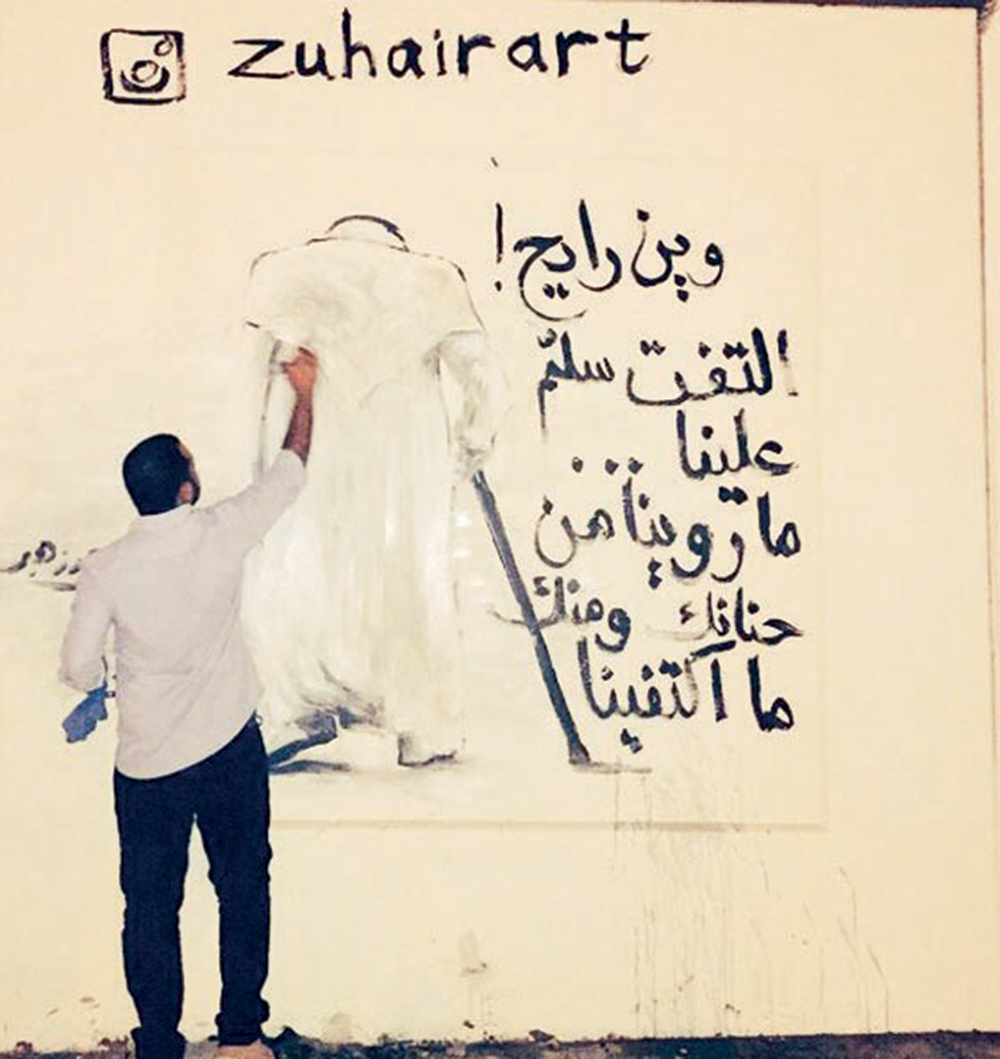 zuhairart
وين رايح!
التفت سلّم
علينا
ما روينا من
حنانك ومنك
ما اكتفينا